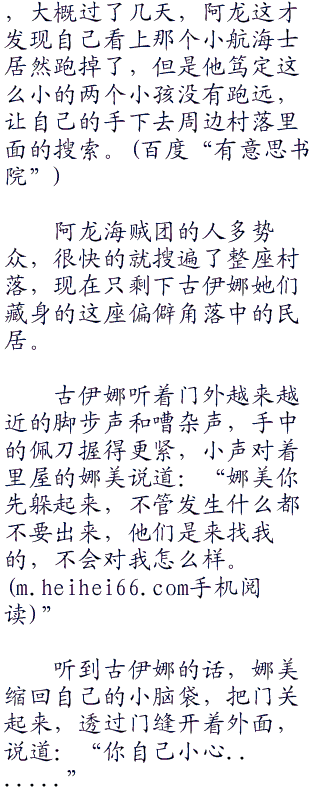 ，大概过了几天，阿龙这才
发现自己看上那个小航海士
居然跑掉了，但是他笃定这
么小的两个小孩没有跑远，
让自己的手下去周边村落里
面的搜索。(百度“有意思书
院”)
阿龙海贼团的人多势
众，很快的就搜遍了整座村
落，现在只剩下古伊娜她们
藏身的这座偏僻角落中的民
居。
古伊娜听着门外越来越
近的脚步声和嘈杂声，手中
的佩刀握得更紧，小声对着
里屋的娜美说道：“娜美你
先躲起来，不管发生什么都
不要出来，他们是来找我
的，不会对我怎么样。
(m.heihei66.com手机阅
读)”
听到古伊娜的话，娜美
缩回自己的小脑袋，把门关
起来，透过门缝开着外面，
说道：“你自己小心..
.....”